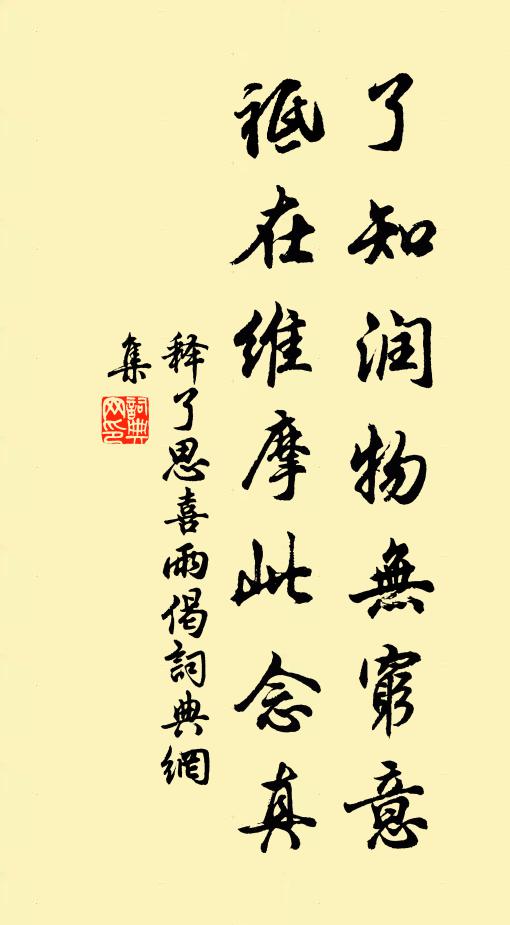 了知润物無窮意
祗在维摩此念真
释了思喜雨偈詞典網
集
詞典網印